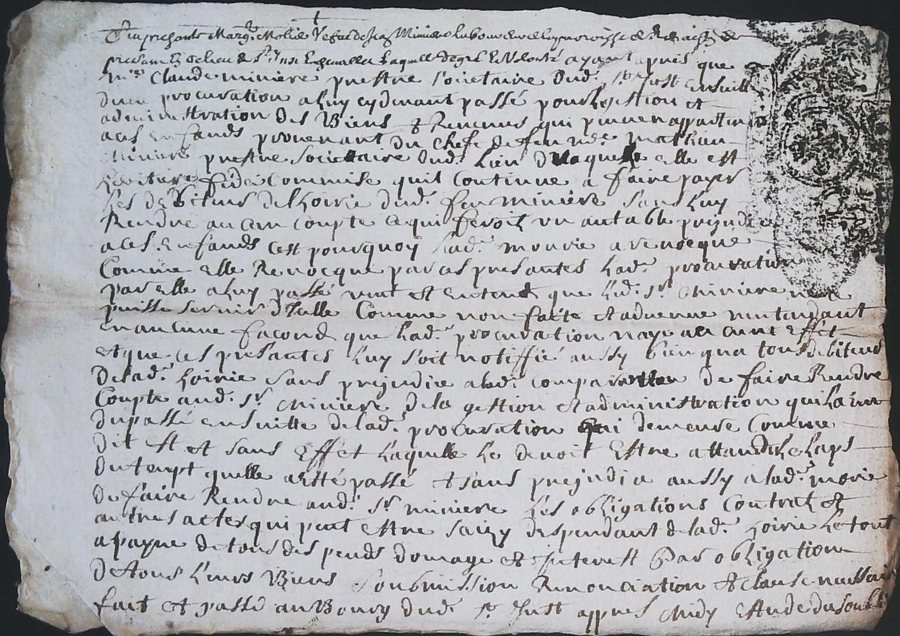 Fut presante Marg.te Morie Vefve de feu
presant lieu de S.t Just Laquelle de gré et Volonté ayant apris que
m.re Claude miniere prestre Societaire dud. S.t Just ensuitte
d'une procuration a luy cydevant passé pour la gestion et
administration des Biens et Revenus qui peuvent appartenir
a ces enfands provenant du Chefz de feu m.re mathieu
miniere prestre Societaire dud. lieu de laquelle elle est
heritiere fideicommise quil Continue a faire payer
les debiteurs de lhoirie dud. feu miniere sans luy
Rendre aucun Compte ce qui seroit un notable prejudice
a ces enfands cest pourquoy lad. mourie a revocque
Comme elle Revocque par ces presantes lad. procuration
par elle a luy passé veut et entend que led. s.r miniere ne
puisse servir dicelle Comme non faite et advenue nentendant
en aucune facond que lad. procuration naye aucunt effet
et que ces presantes luy soit notiffié aussy bien qua tous debiteurs
de lad. hoirie sans prejudice a lad. Comparante de faire Rendre
Compte aud. s.r miniere de la gestion et administration quil a eue
du passé ensuitte de lad. procuration qui demeure Comme
dit est et sans effet laquelle le devoit estre attandu le laps
du tempt quelle a esté passé et sans prejudice aussy a lad. morie
de faire Rendre aud. s.r miniere les obligations Contrat et
autres actes quil peut estre saizy despendant de lad. hoirie le tout
a payne de tous despends domage et Interest par obligation
de tous leurs Biens soubmission Renonciation et clause necessaire
fait et passé au Bourg dud. S.t Just appres midy estude du soub.né